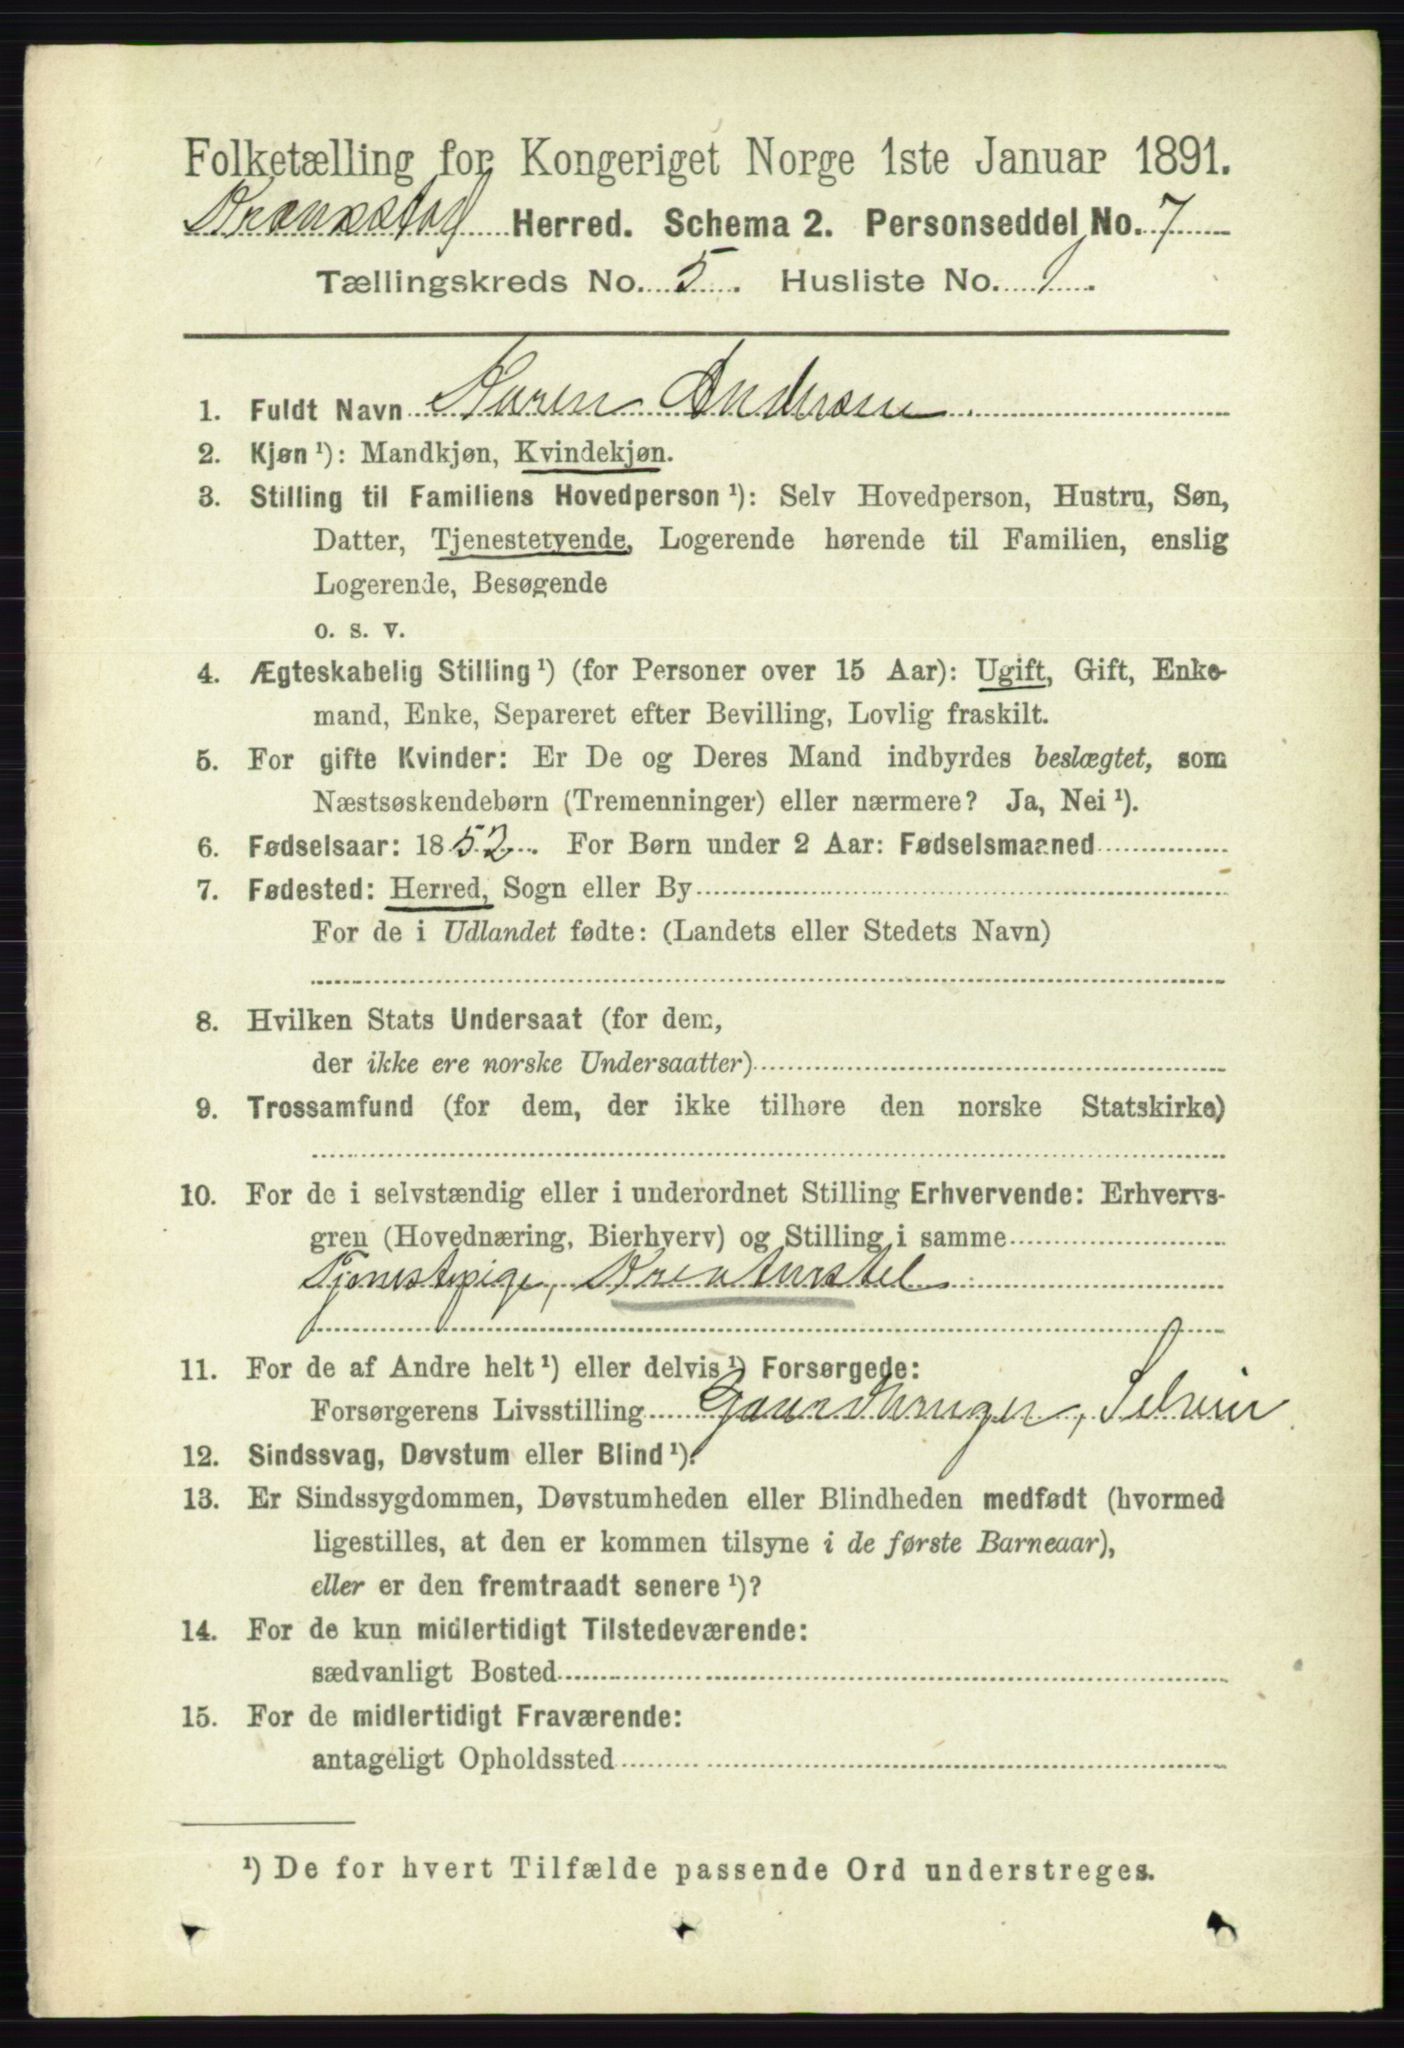 Folketælling for Kongeriget Norge 1ste Januar 1891.
Herred. Schema 2. Personseddel No. 7
Tællingskreds No. 5. Husliste No. 1.
1. Fuldt Navn Karen Andersen
2. Kjøn ¹): Mandkjøn, Kvindekjøn.
3. Stilling til Familiens Hovedperson ¹): Selv Hovedperson, Hustru, Søn,
Datter, Tjenestetyende, Logerende hørende til Familien, enslig
Logerende, Besøgende
o. s. v.
4. Ægteskabelig Stilling ¹) (for Personer over 15 Aar): Ugift, Gift, Enke-
mand, Enke, Separeret efter Bevilling, Lovlig fraskilt.
5. For gifte Kvinder: Er De og Deres Mand indbyrdes beslægtet, som
Næstsøskendebørn (Tremenninger) eller nærmere? Ja, Nei ¹).
6. Fødselsaar: 1852. For Børn under 2 Aar: Fødselsmaaned
7. Fødested: Herred, Sogn eller By
For de i Udlandet fødte: (Landets eller Stedets Navn)
8. Hvilken Stats Undersaat (for dem,
der ikke ere norske Undersaatter)
9. Trossamfund (for dem, der ikke tilhøre den norske Statskirke)
10. For de i selvstændig eller i underordnet Stilling Erhvervende: Erhvervs-
gren (Hovednæring, Bierhverv) og Stilling i samme
Tjenestepige, Kreaturstel
11. For de af Andre helt ¹) eller delvis ¹) Forsørgede:
Forsørgerens Livsstilling Gaardbruger, Selveier
12. Sindssvag, Døvstum eller Blind ¹).
13. Er Sindssygdommen, Døvstumheden eller Blindheden medfødt (hvormed
ligestilles, at den er kommen tilsyne i de første Barneaar),
eller er den fremtraadt senere ¹)?
14. For de kun midlertidigt Tilstedeværende:
sædvanligt Bosted
15. For de midlertidigt Fraværende:
antageligt Opholdssted
¹) De for hvert Tilfælde passende Ord understreges.